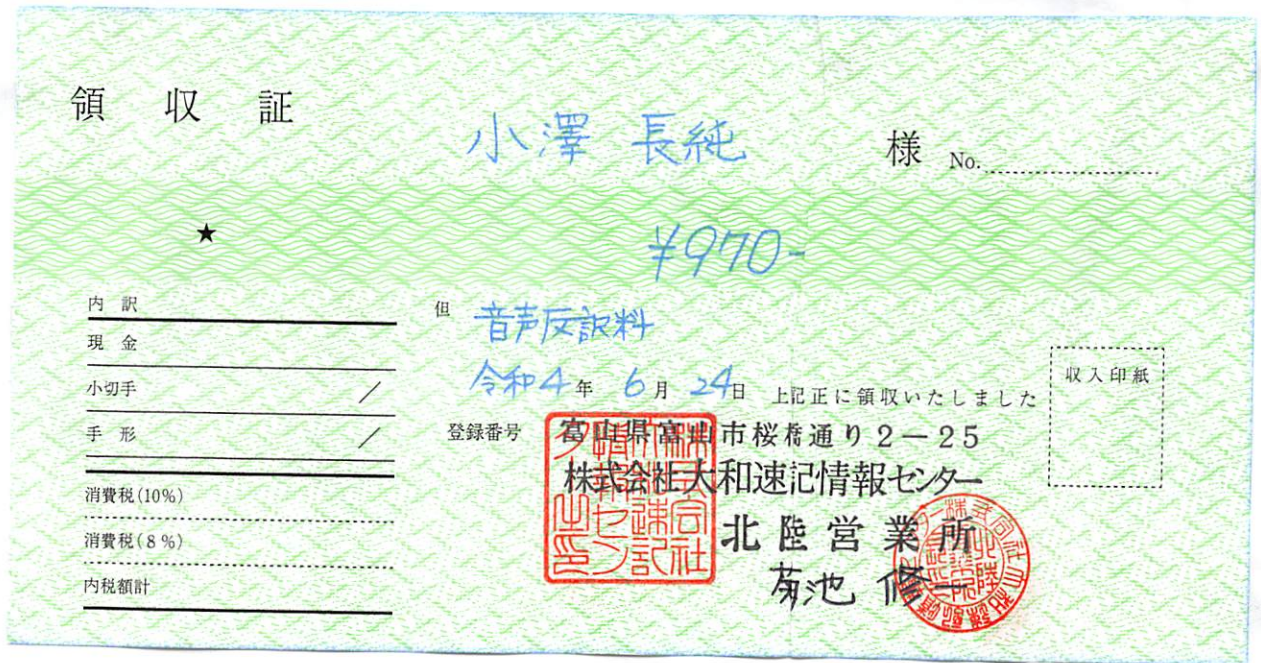 領収証
小澤 長純 様 No.
★
¥970-
内訳
現金
小切手 /
手形 /
消費税(10%)
消費税(8%)
内税額計
但 音声反訳料
令和4年 6月 24日 上記正に領収いたしました
収入印紙
登録番号
富山県富山市桜橋通り2-25
株式会社大和速記情報センター
北陸営業所
菊池 修一
株式会社大和速記情報センター之印